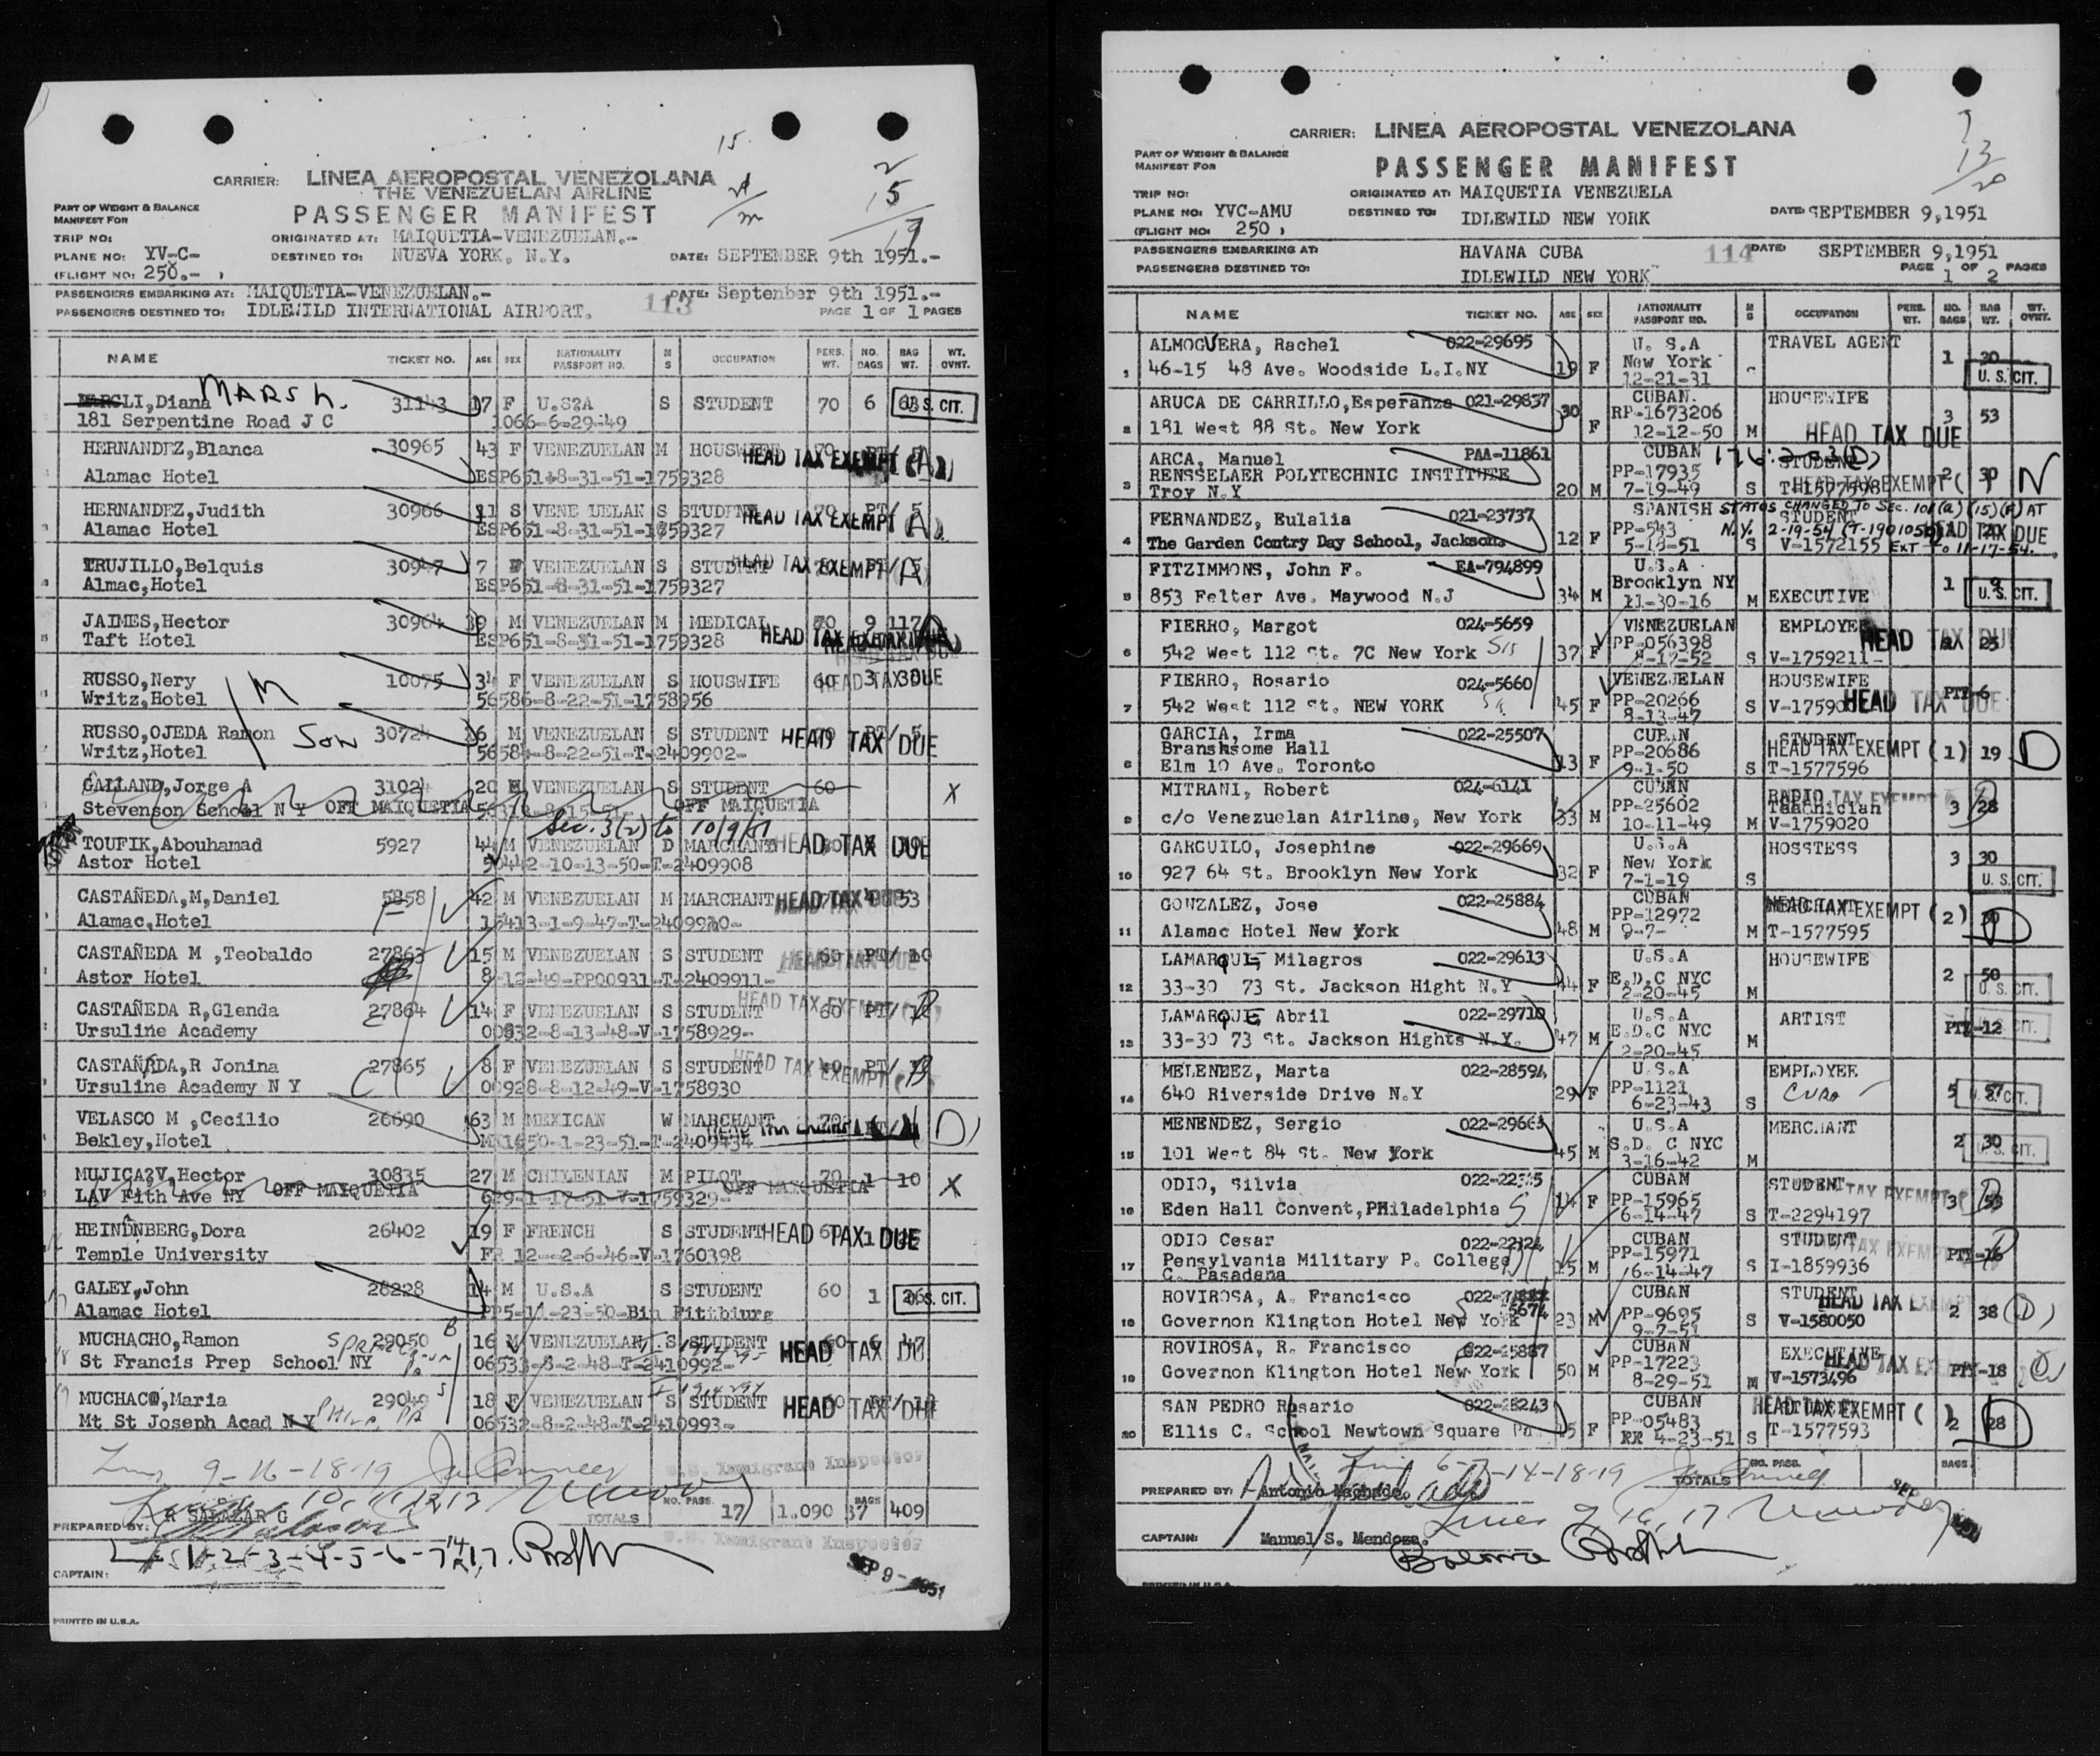 15.
2
15
19
CARRIER: LINEA AEROPOSTAL VENEZOLANA
THE VENEZUELAN AIRLINE
PASSENGER MANIFEST
PART OF WEIGHT & BALANCE
MANIFEST FOR
TRIP NO:
ORIGINATED AT: MAIQUETIA-VENEZUELAN.-
PLANE NO: YV-C-
DESTINED TO: NUEVA YORK, N.Y.
DATE: SEPTEMBER 9th 1951.-
(FLIGHT NO: 250.- )
PASSENGERS EMBARKING AT: MAIQUETIA-VENEZUELAN.-
113
DATE: September 9th 1951.-
PASSENGERS DESTINED TO: IDLEWILD INTERNATIONAL AIRPORT.
PAGE 1 OF 1 PAGES
NAME TICKET NO. AGE SEX NATIONALITY PASSPORT NO. M S OCCUPATION PERS. WT. NO. BAGS BAG WT. WT. OVNT.
MARSH.
Diana 31143 17 F U.S?A S STUDENT 70 6 U.S. CIT.
181 Serpentine Road J C 1066-6-29-49
HERNANDEZ,Blanca 30965 43 F VENEZUELAN M HOUSWIFE 70 PT/ 5
HEAD TAX EXEMPT (A)
Alamac Hotel ESP651-8-31-51-1759328
HERNANDEZ,Judith 30966 11 S VENE UELAN S STUDENT 70 PT/ 5
HEAD TAX EXEMPT (A)
Alamac Hotel ESP651-8-31-51-1759327
TRUJILLO,Belquis 30947 7 F VENEZUELAN S STUDENT PT/ 5
HEAD TAX EXEMPT (A)
Almac,Hotel ESP651-8-31-51-1759327
JAIMES,Hector 30964 39 M VENEZUELAN M MEDICAL 80 9 117
HEAD TAX DUE
Taft Hotel ESP651-8-31-51-1759328
RUSSO,Nery 10075 34 F VENEZUELAN S HOUSWIFE 60 3 30
HEAD TAX DUE
Writz,Hotel M 56586-8-22-51-1758956
RUSSO,OJEDA Ramon Son 30724 16 M VENEZUELAN S STUDENT PT/ 5
HEAD TAX DUE
Writz,Hotel 56584-8-22-51-T-2409902-
GALLAND,Jorge A 31024 20 M VENEZUELAN S STUDENT 60 X
Stevenson School N Y OFF MAIQUETIA OFF MAIQUETIA
Sec. 3(2) to 10/9/51
TOUFIK,Abouhamad 5927 44 M VENEZUELAN D MARCHANT
HEAD TAX DUE
Astor Hotel 50442-10-13-50-T-2409908
CASTAÑEDA,M,Daniel 5858 42 M VENEZUELAN M MARCHANT 53
HEAD TAX DUE
F
Alamac,Hotel 15413-1-9-47-T-2409910-
CASTAÑEDA M ,Teobaldo 27863 15 M VENEZUELAN S STUDENT 60 PT/ 10
HEAD TAX DUE
Astor Hotel 8-12-49-PP00931-T-2409911-
CASTAÑEDA R,Glenda 27864 14 F VENEZUELAN S STUDENT 60 PT/
HEAD TAX EXEMPT
Ursuline Academy 00932-8-13-48-V-1758929-
CASTAÑEDA,R Jonina 27865 8 F VENEZUELAN S STUDENT 40 PT/
HEAD TAX EXEMPT
Ursuline Academy N Y 00928-8-12-49-V-1758930
VELASCO M ,Cecilio 26690 63 M MEXICAN W MARCHANT 70
HEAD TAX EXEMPT (D)
Bekley,Hotel MX1650-1-23-51-T-2409434
MUJICA?V,Hector 30835 27 M CHILENIAN M PILOT 70 1 10 X
LAV Fith Ave NY OFF MAIQUETIA 629-1-17-51-V-1759329- OFF MAIQUETIA
HEINDNBERG,Dora 26402 19 F FRENCH S STUDENT 60 1
HEAD TAX DUE
Temple University FR 12--2-6-46-V-1760398
GALEY,John 28228 14 M U.S.A S STUDENT 60 1 26 U.S. CIT.
Alamac Hotel PP5-11-23-50-Bin Pittburg
MUCHACHO,Ramon 29050 B 16 M VENEZUELAN S STUDENT 60 6 47
HEAD TAX DUE
St Francis Prep School NY 06533-8-2-48-T-2410992-
MUCHACO,Maria 29049 S 18 F VENEZUELAN S STUDENT 60 PT/ 18
HEAD TAX DUE
Mt St Joseph Acad N Y PHILA, PA 06532-8-2-48-T-2410993-
9-16-18-19
U.S. Immigrant Inspector
10, 11, 12, 13
PREPARED BY: R SALAZAR G
TOTALS NO. PASS. 17 1.090 BAGS 37 409
U.S. Immigrant Inspector
1-2-3-4-5-6-7-14-17.
CAPTAIN:
SEP 9 - 1951
PRINTED IN U.S.A.
13
20
CARRIER: LINEA AEROPOSTAL VENEZOLANA
PART OF WEIGHT & BALANCE
MANIFEST FOR
PASSENGER MANIFEST
TRIP NO:
ORIGINATED AT: MAIQUETIA VENEZUELA
PLANE NO: YVC-AMU
DESTINED TO: IDLEWILD NEW YORK
DATE: SEPTEMBER 9,1951
(FLIGHT NO: 250 )
PASSENGERS EMBARKING AT: HAVANA CUBA
114
DATE: SEPTEMBER 9,1951
PASSENGERS DESTINED TO: IDLEWILD NEW YORK
PAGE 1 OF 2 PAGES
NAME TICKET NO. AGE SEX NATIONALITY PASSPORT NO. M S OCCUPATION PERS. WT. NO. BAGS BAG WT. WT. OVNT.
ALMOGUERA, Rachel 022-29695 U. S.A TRAVEL AGENT
1 46-15 48 Ave. Woodside L.I.NY 19 F New York 1 30
12-21-31 U.S. CIT.
ARUCA DE CARRILLO,Esperanza 021-29837 30 CUBAN. HOUSEWIFE
RP-1673206 3 53
2 181 West 88 St. New York F 12-12-50 M HEAD TAX DUE
ARCA, Manuel PAA-11861 CUBAN
RENSSELAER POLYTECHNIC INSTITUTE PP-17935 STUDENT 2 30 N
3 Troy N.Y 20 M 7-19-49 S T-1577598 HEAD TAX EXEMPT ( )
SPANISH STATUS CHANGED TO SEC. 101(a)(15)(F) AT
FERNANDEZ, Eulalia 021-23737 PP-543 STUDENT N.Y. 2-19-54 HEAD TAX DUE
4 The Garden Contry Day School, Jackson 12 F 5-18-51 S V-1572155 EXT to 11-17-54.
FITZIMMONS, John F. EA-794899 U.S.A
Brooklyn NY 1 9 U.S. CIT.
5 853 Felter Ave. Maywood N.J 34 M 11-30-16 M EXECUTIVE
FIERRO, Margot 024-5659 VENEZUELAN EMPLOYEE
HEAD TAX DUE
6 542 West 112 St. 7C New York Sis 37 F PP-056398 25
8-12-52 S V-1759211-
FIERRO, Rosario 024-5660 VENEZUELAN HOUSEWIFE
7 542 West 112 St. NEW YORK 45 F PP-20266 PTY-6
8-13-47 S V-1759 HEAD TAX DUE
GARCIA, Irma 022-25507 CUBAN STUDENT
Branshsome Hall PP-20686 HEAD TAX EXEMPT (1) 19 D
8 Elm 10 Ave. Toronto 13 F 9-1-50 S T-1577596
MITRANI, Robert 024-6141 CUBAN RADIO
HEAD TAX EXEMPT
9 c/o Venezuelan Airline, New York 33 M PP-25602 Taechician 3 28
10-11-49 M V-1759020
GARGUILO, Josephine 022-29669 U.S.A HOSSTESS
10 927 64 St. Brooklyn New York 32 F New York 3 30
7-1-19 S U.S. CIT.
GONZALEZ, Jose 022-25884 CUBAN
PP-12972 HEAD TAX EXEMPT (2)
11 Alamac Hotel New York 48 M 9-7- M T-1577595
LAMARQUE, Milagros 022-29613 U.S.A HOUSEWIFE
12 33-30 73 St. Jackson Hight N.Y 44 F E.D.C NYC 2 50
2-20-45 M U.S. CIT.
LAMARQUE, Abril 022-29710 U.S.A ARTIST
13 33-30 73 St. Jackson Hights N.Y. 47 M E.D.C NYC PTY-12 U.S. CIT.
2-20-45 M
MELENDEZ, Marta 022-28594 U.S.A EMPLOYEE
14 640 Riverside Drive N.Y 29 F PP-1121 CUBA 5 57 U.S. CIT.
6-23-43 S
MENENDEZ, Sergio 022-29663 U.S.A MERCHANT
15 101 West 84 St. New York 45 M S.D. C NYC 2 30 U.S. CIT.
3-16-42 M
ODIO, Silvia CUBAN STUDENT
HEAD TAX EXEMPT
16 Eden Hall Convent,PHiladelphia S 14 F PP-15965 3 53
6-14-47 S T-2294197
ODIO Cesar CUBAN STUDENT
HEAD TAX EXEMPT
Pensylvania Military P. College PP-15971 PTY-16
17 C. Pasadena 15 M 6-14-47 S I-1859936
ROVIROSA, A. Francisco 022- 5674 CUBAN STUDENT
HEAD TAX EXEMPT
18 Governon Klington Hotel New York 23 M PP-9695 2 38
9-7-51 S V-1580050
ROVIROSA, R. Francisco 022-25887 CUBAN EXECUTIVE
HEAD TAX EXEMPT
19 Governon Klington Hotel New York 50 M PP-17223 PTY-18
8-29-51 M V-1573496
SAN PEDRO Rosario 022-28243 CUBAN
HEAD TAX EXEMPT ( )
20 Ellis C. School Newtown Square Pa. 15 F PP-05483 2 28
RR 4-23-51 S T-1577593
6-7-14-18-19
PREPARED BY: Antonio Machado.
TOTALS NO. PASS. BAGS
9, 16, 17
CAPTAIN: Manuel S. Mendoza.